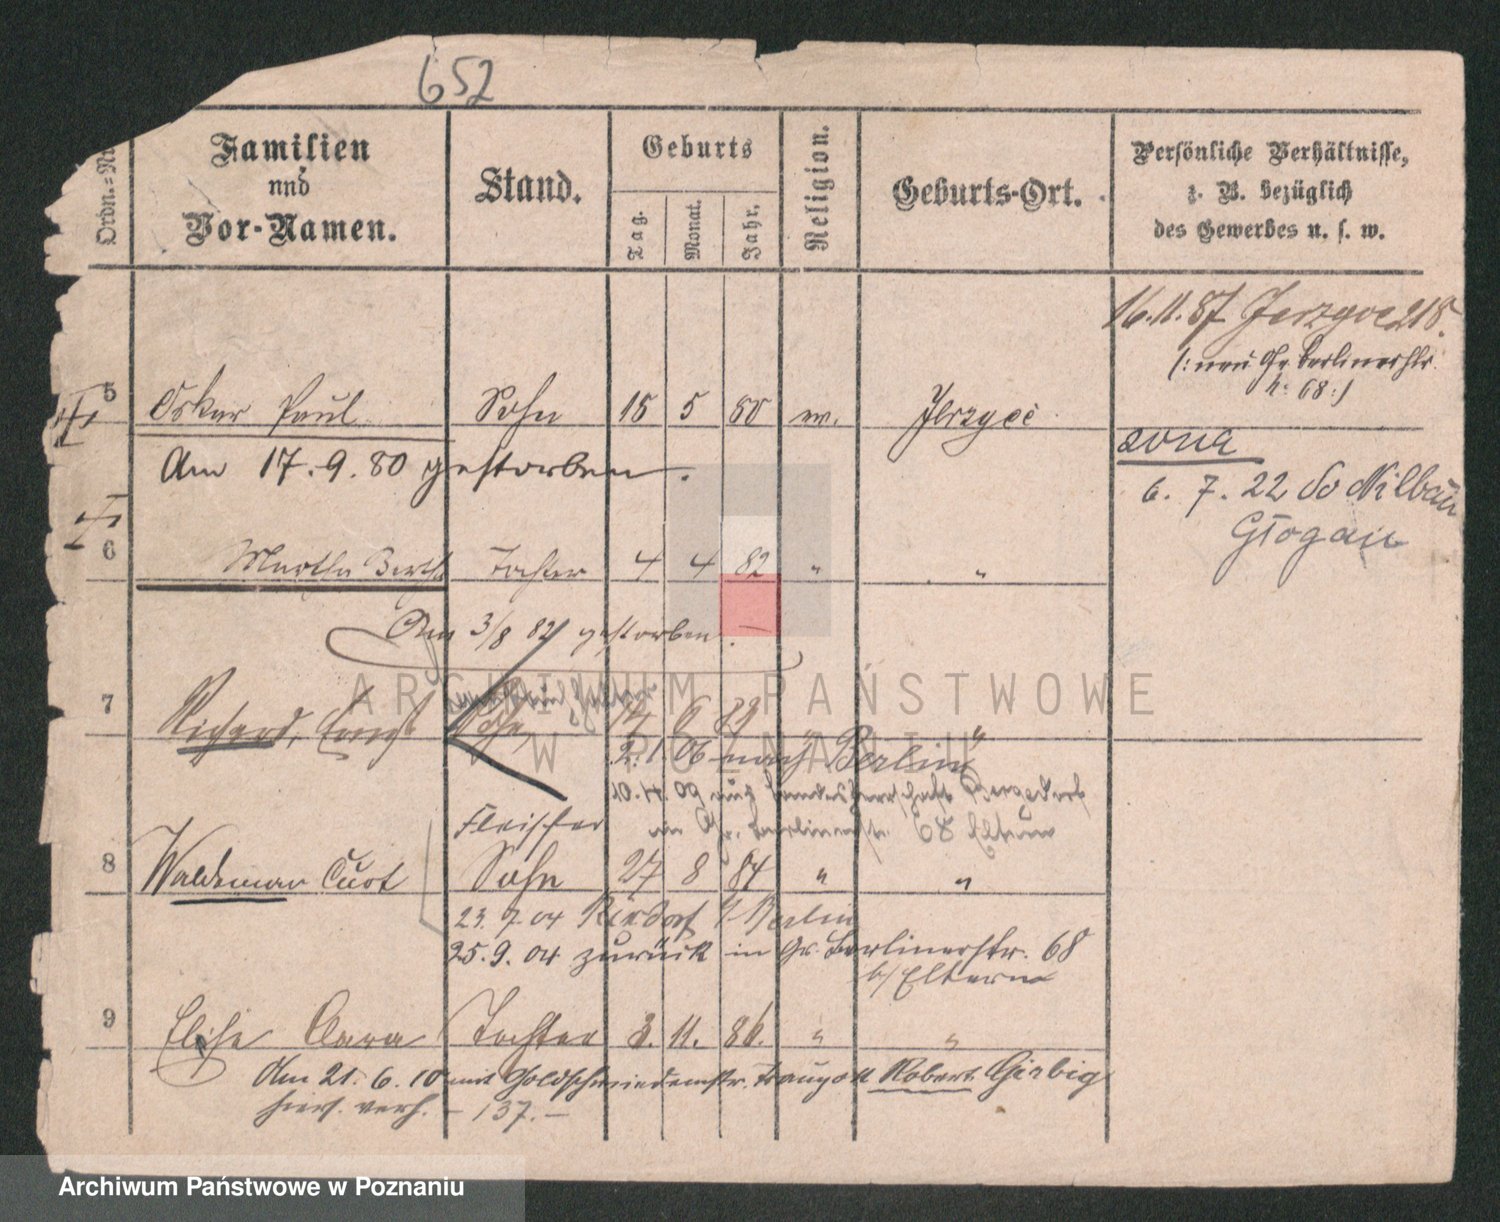 652
Ordn.=
Familien
und
Vor-Namen.
Stand.
Geburts
Tag.
Monat.
Jahr.
Religion.
Geburts-Ort.
Persönliche Verhältnisse,
z. B. bezüglich
des Gewerbes u. s. w.
16.11.87 Jerzyce 218.
(: neu Gr. Berlinerstr.
N: 68 :)
5 Oskar Paul Sohn 15 5 80 ev. Jerzyce
Am 17.9.80 gestorben.
zona
6. 7. 22 Nilbau
Glogau
6 Martha Bertha Tochter 4 4 82 " "
Am 3/8 82 gestorben.
7 Richard, Ernst Sohn, 6 "
2.1.06 nach Berlin
10.4.09 aus Bergedorf
in Gr. Berlinerstr. 68 Eltern
Fleischer
8 Waldemar Curt Sohn 27 8 84 " "
23.7.04 Rixdorf b/Berlin
25.9.04 zurück in Gr. Berlinerstr. 68
b/Eltern
9 Elise Clara Tochter 3. 11. 86. " "
Am 21.6.10 mit Goldschmiedemstr. Traugott Robert Girbig
hiers. verh. – 137. –
ARCHIWUM PAŃSTWOWE
W POZNANIU
Archiwum Państwowe w Poznaniu